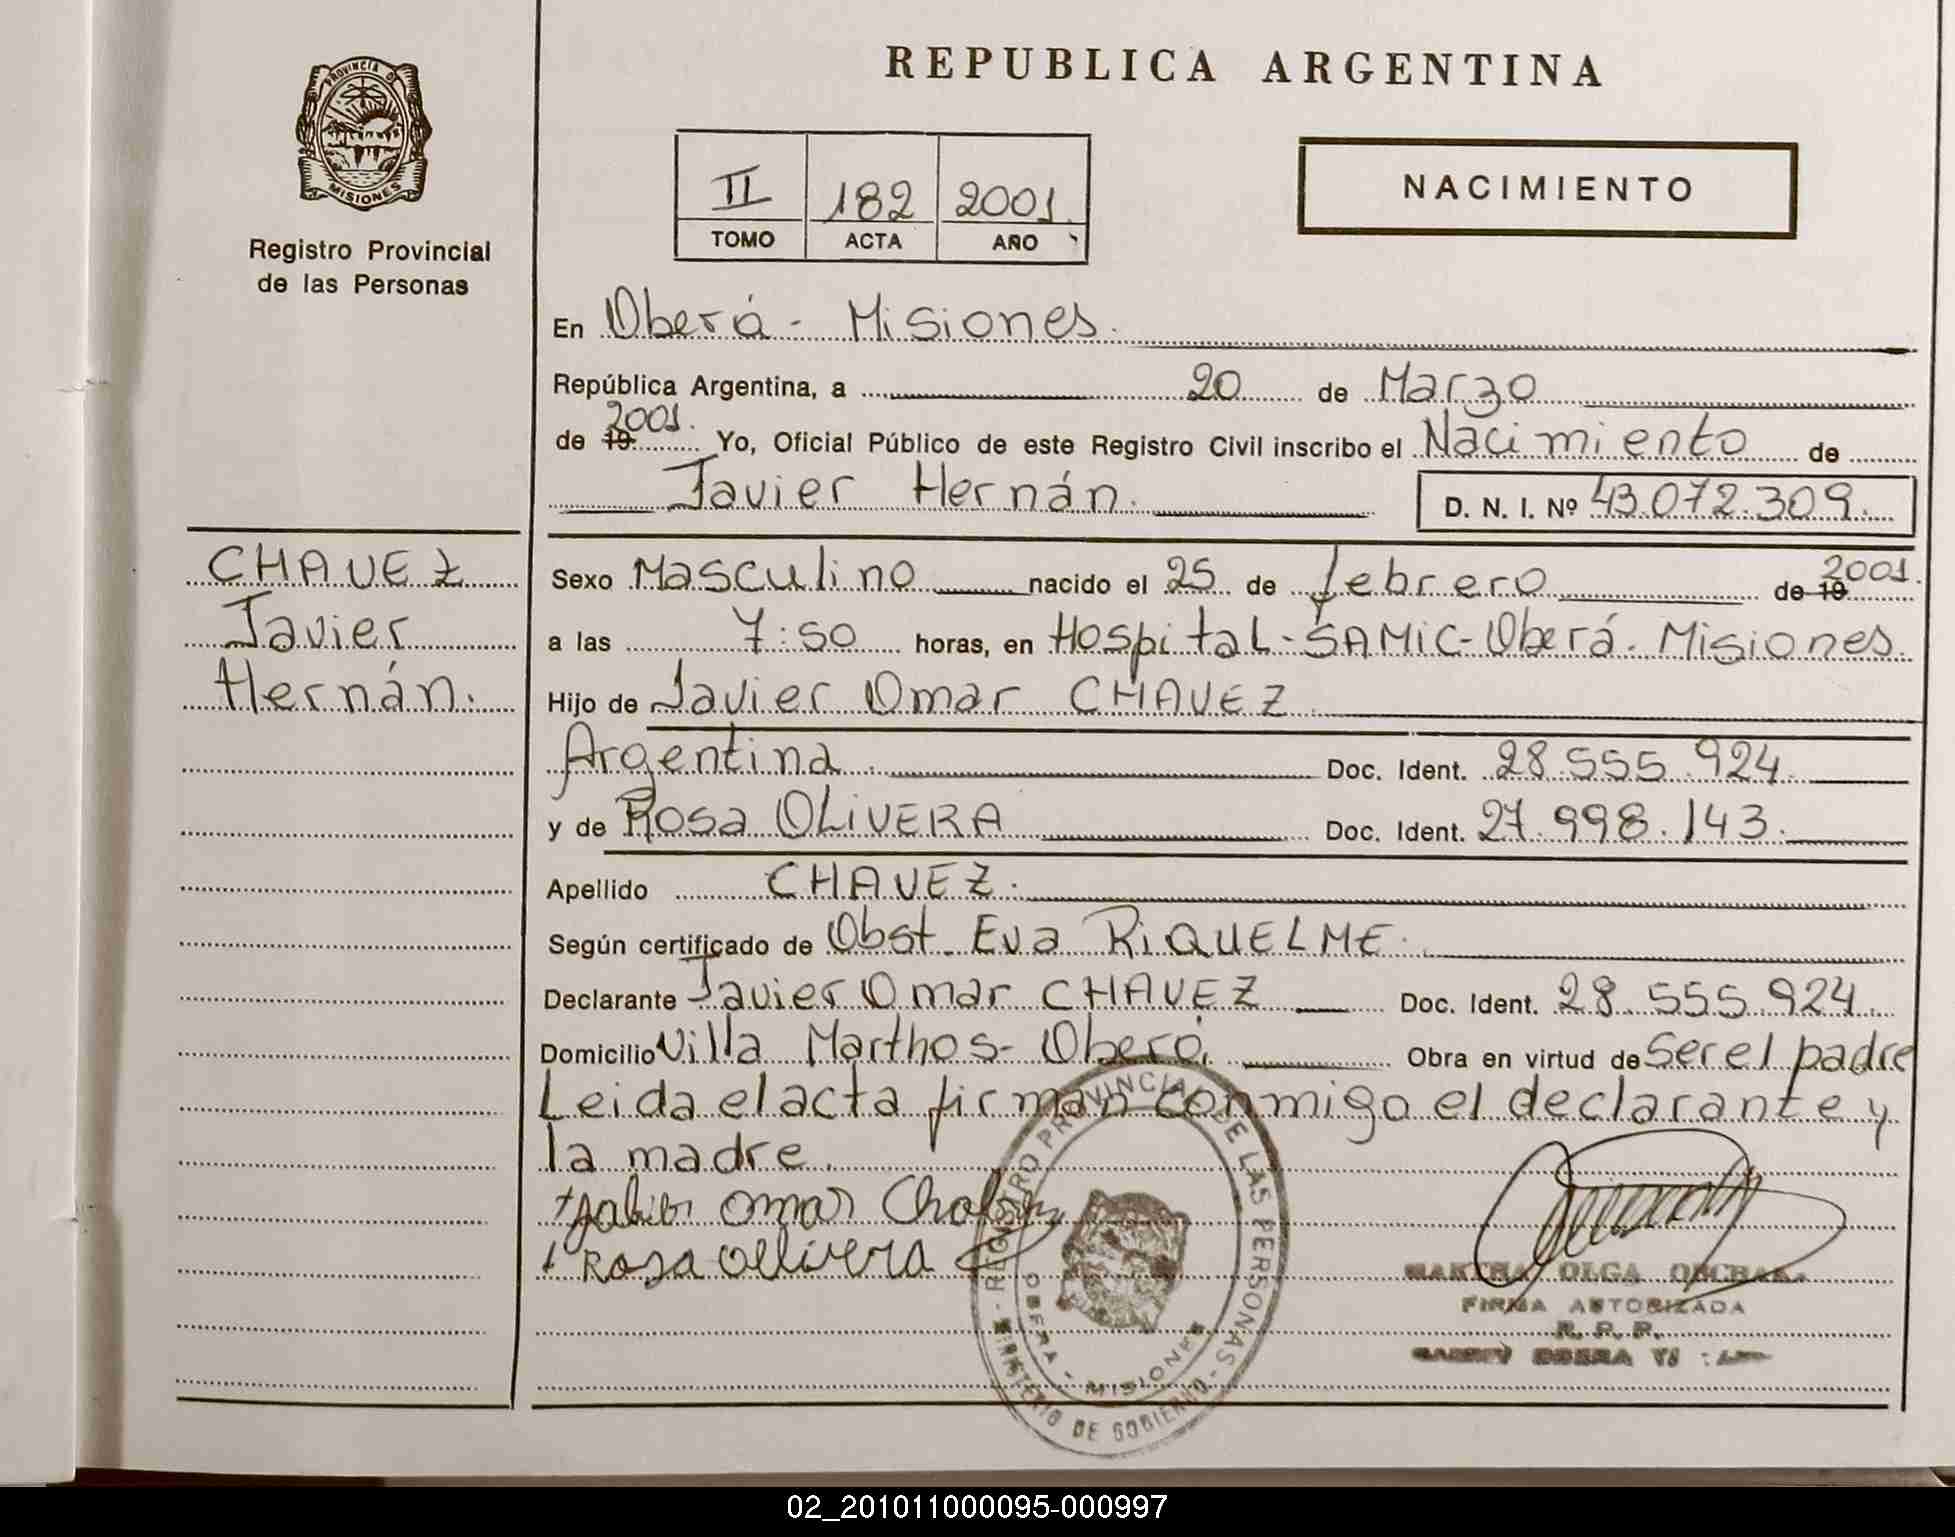 PROVINCIA DE
MISIONES
Registro Provincial
de las Personas
CHAVEZ
Javier
Hernán.
REPUBLICA ARGENTINA
II 182 2001.
TOMO ACTA AÑO
NACIMIENTO
En Oberá - Misiones.
República Argentina, a 20 de Marzo
de 19 2001. Yo, Oficial Público de este Registro Civil inscribo el Nacimiento de
Javier Hernán. D. N. I. Nº 43.072.309.
Sexo Masculino nacido el 25 de febrero de 19 2001.
a las 7:50 horas, en Hospital-SAMIC-Oberá. Misiones.
Hijo de Javier Omar CHAVEZ
Argentina. Doc. Ident. 28.555.924.
y de Rosa OLiVERA Doc. Ident. 27.998.143.
Apellido CHAVEZ.
Según certificado de Obst. Eva RiQUELME.
Declarante Javier Omar CHAVEZ Doc. Ident. 28.555.924.
Domicilio Villa Marthos- Oberá. Obra en virtud de Ser el padre
Leida el acta firman conmigo el declarante y
la madre.
Jabier Omar
Rosa Ollivera
REGISTRO PROVINCIAL DE LAS PERSONAS
MINISTERIO DE GOBIERNO
OBERA - MISIONES
MARTHA OLGA
FIRMA AUTORIZADA
R. P. P.
OBERA
02_201011000095-000997